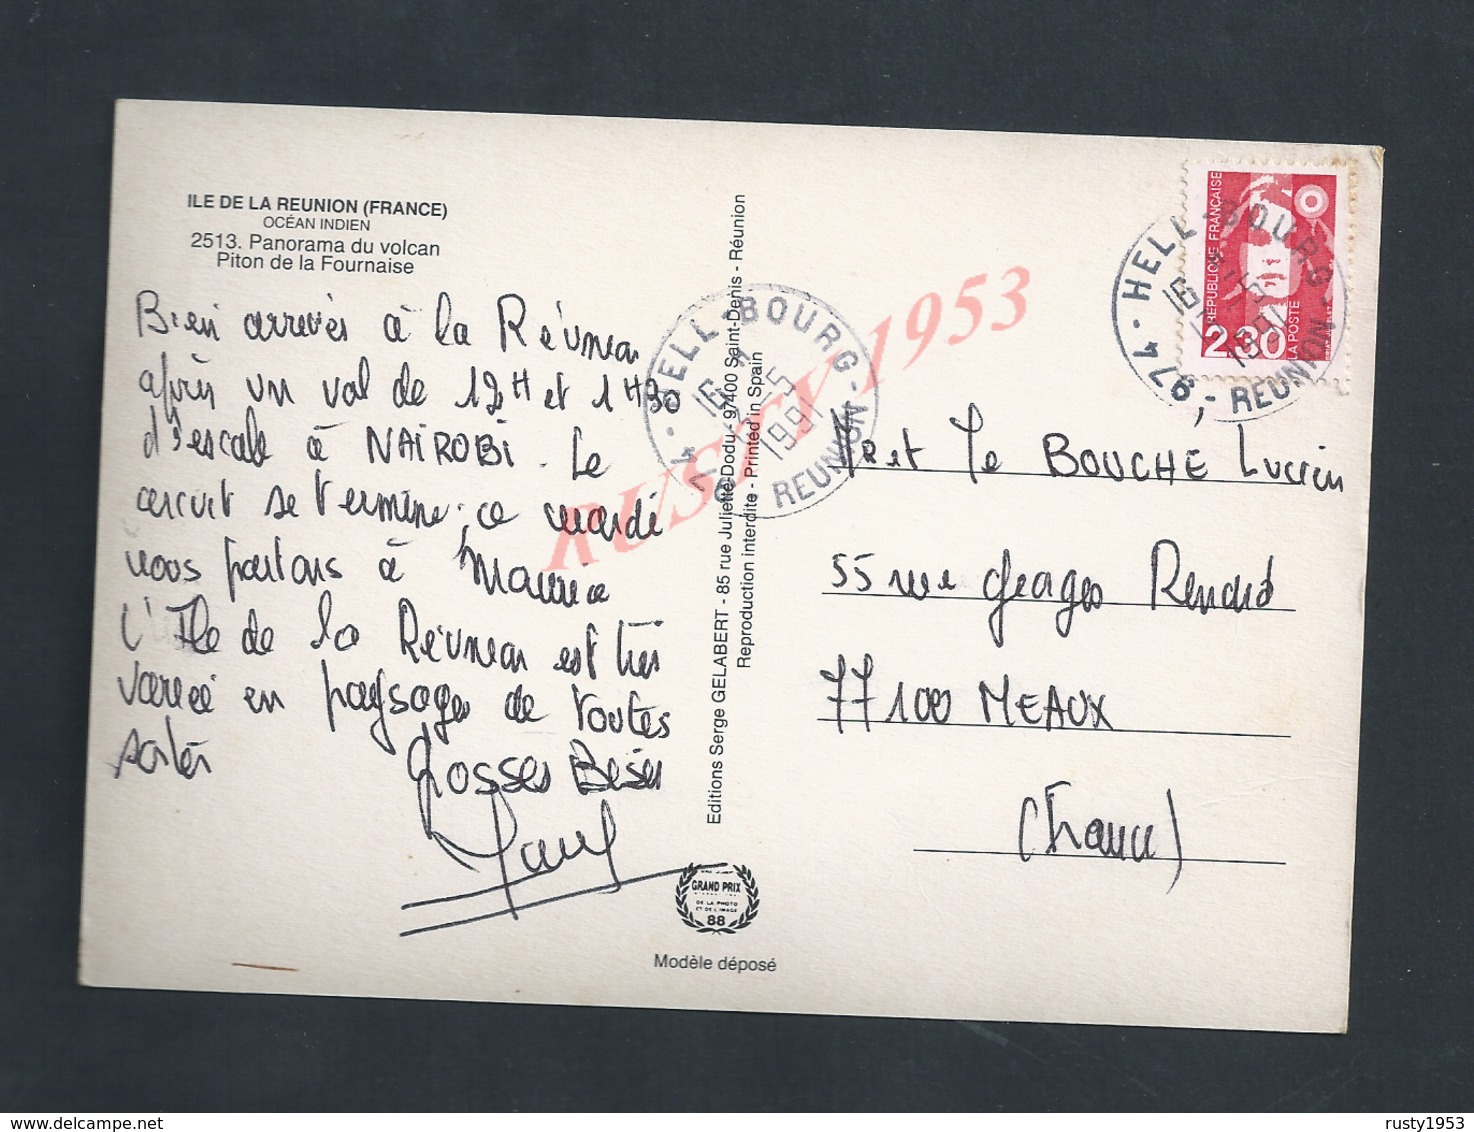 ILE DE LA REUNION (FRANCE)
OCÉAN INDIEN
2513. Panorama du volcan
Piton de la Fournaise
Bien arrivés à la Réunion
après un vol de 12H et 1H30
d'escale à NAIROBI. Le
circuit se termine, ce mardi
nous partons à Maurice
L'Ile de la Réunion est très
variée en paysages de toutes
sortes
Grosses Bises
Editions Serge GELABERT - 85 rue Juliette Dodu - 97400 Saint-Denis - Réunion
Reproduction interdite - Printed in Spain
GRAND PRIX
DE LA PHOTO
ET DE L'IMAGE
88
Modèle déposé
974 - HELL-BOURG - REUNION
16 H
-5
1991
REPUBLIQUE FRANÇAISE
2,30
LA POSTE
974 - HELL-BOURG - REUNION
16 H
-5
1991
Mr et Me BOUCHE Lucien
55 rue Georges Renard
77100 MEAUX
(France)
RUSTY 1953
rusty1953